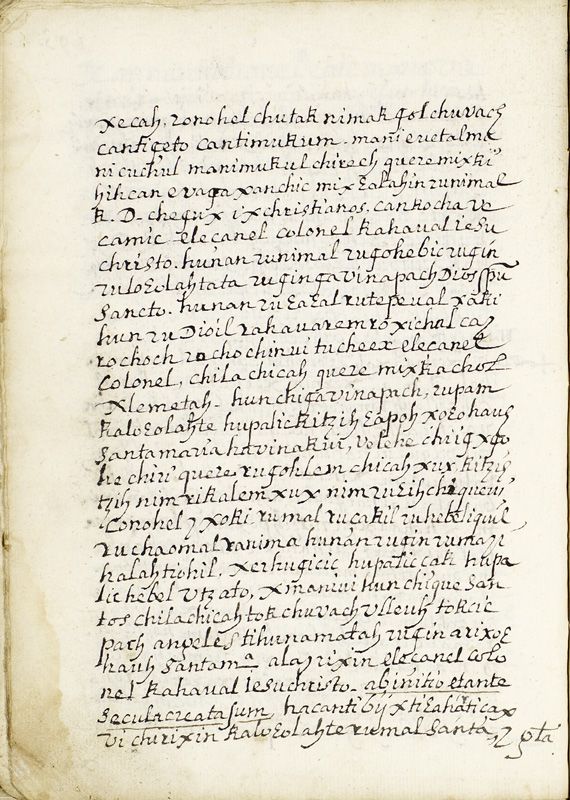 xecah, ronohel chutak nimak qol chuvach
cantiçeto cantimukum. mani evetalme
ni cuchul manimukul chirech quere mixki
hihcan e vaga xanchic mix Ealahin runimal
k. D. chequx ix christianos, can kochave
camic elecanel colonel kahaual iesu
christo. hunan runimal rugohebic rugin
ruloEolahtata ruginga vinapach Dios spũ
sancto. hunan ru EaEal rutepeval xaki
hun ru Dioil rahavarem ro xichal ca
rochoch rochochinvi tucheex elecanel
Colonel, chila chicah quere mixkachol
Alemetah. hunchigavinapach, rupam
kaloEolahte hupalic kitzih Eapoh xoEohauh
santa maria havinakvi, volehe chi iq xgo
he chiri quere rugohlem chicah xux, kitzih
tzih nim rikalem xux nim ruEih chiquevi
Conohel xoki rumal ruçakil ruhebeliquil
ruchaomal ranima hunan rugin rumazi
halahtiohil. xerhugicic hupalic çak hupa
lic hebel vtzato, xmanivi hunchique san
tos chila chicah tok chuvach vlleuh tokcic
pach angeles tihunamatah rugin arixoE
hauh santa mª alazrixin elecanel colo
nel kahaual Iesuchristo. abinitio et ante
secula creata sum, hacanti bijxtiEahaticax
vi churixin kaloEolahte rumal santa,